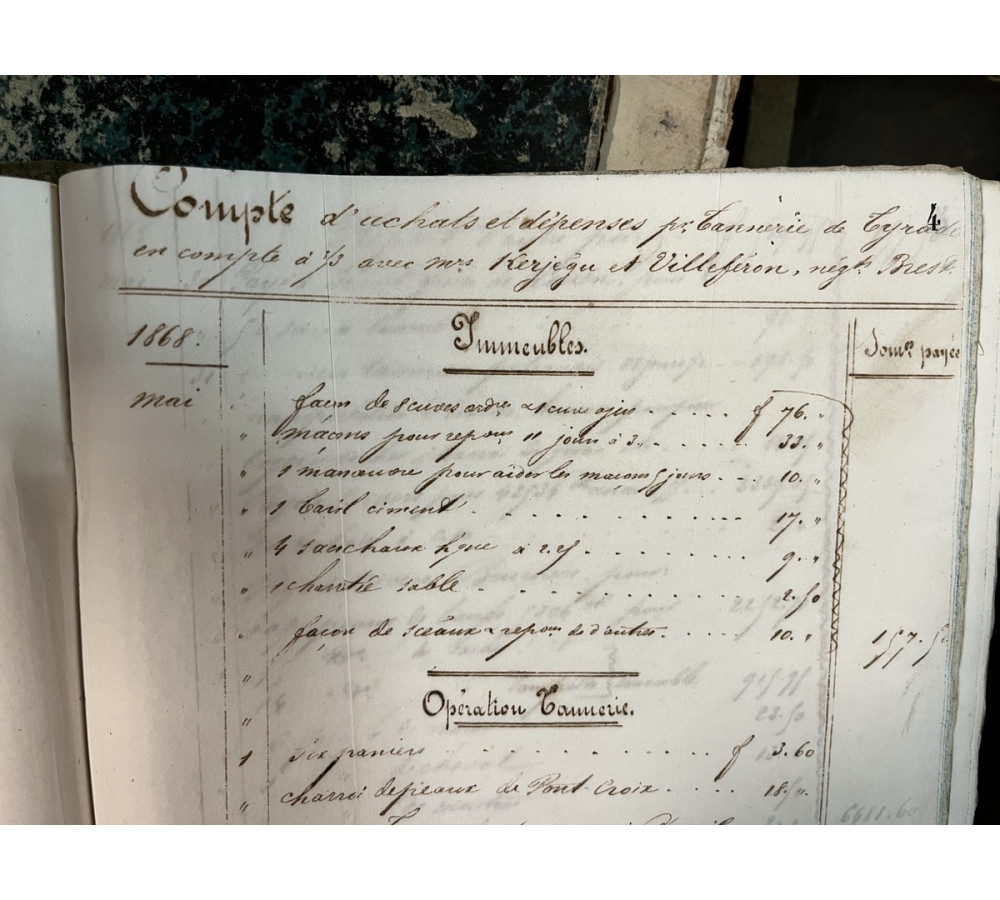 4
Compte d'achats et dépenses pr. Tannerie de
en compte à 1/3 avec mrs Kerjégu et Villeféron, négts. Brest.
1868. Immeubles. Somes payées
mai façon de 8 cuves ordres 1 cuve ajus . . . . . f 76. "
" maçons pour repons 11 jours à 3. . . . . . . 33. "
" 1 manœuvre pour aider les maçons 5 jours . . . 10. "
" 1 baril ciment . . . . . . . . . 17. "
" 4 sacs chaux hque à 2.25 . . . . . . . . 9. "
" 1 charreté sable . . . . . . . . . 2.50
façon de sceaux & repons de d'autres . . . . . 10. " 157.50
"
" Opération Tannerie.
1 six paniers . . . . . . . . . f 3.60
" charroi de peaux de Pont-Croix . . . . . 18. "